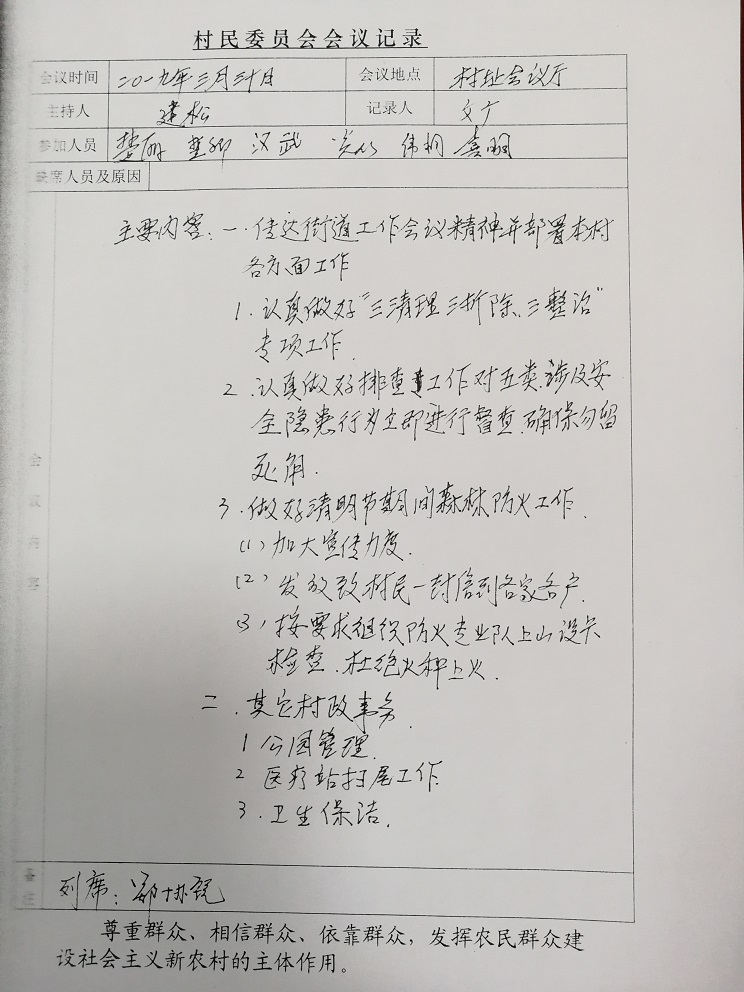 村民委员会会议记录
会议时间 二〇一九年三月三十日 会议地点 村址会议厅
主持人 建松 记录人 文广
参加人员 楚丽 汉武 伟桐 喜明
缺席人员及原因
主要内容：一、传达街道工作会议精神并部署本村
各方面工作
1.认真做好“三清理三拆除、三整治”
专项工作.
2.认真做好排查工作对五类涉及安
全隐患行为立即进行督查.确保勿留
死角.
3.做好清明节期间森林防火工作.
(1)加大宣传力度.
(2)发放致村民一封信到各家各户.
(3)按要求组织防火专业队上山设卡
检查.杜绝火种上火.
二.其它村政事务
1 公园管理.
2 医疗站扫尾工作.
3.卫生保洁.
会议内容
备注
列席：
尊重群众、相信群众、依靠群众，发挥农民群众建
设社会主义新农村的主体作用。